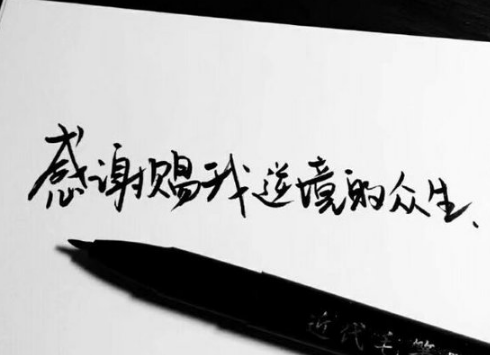 感谢赐我逆境的众生、
近代